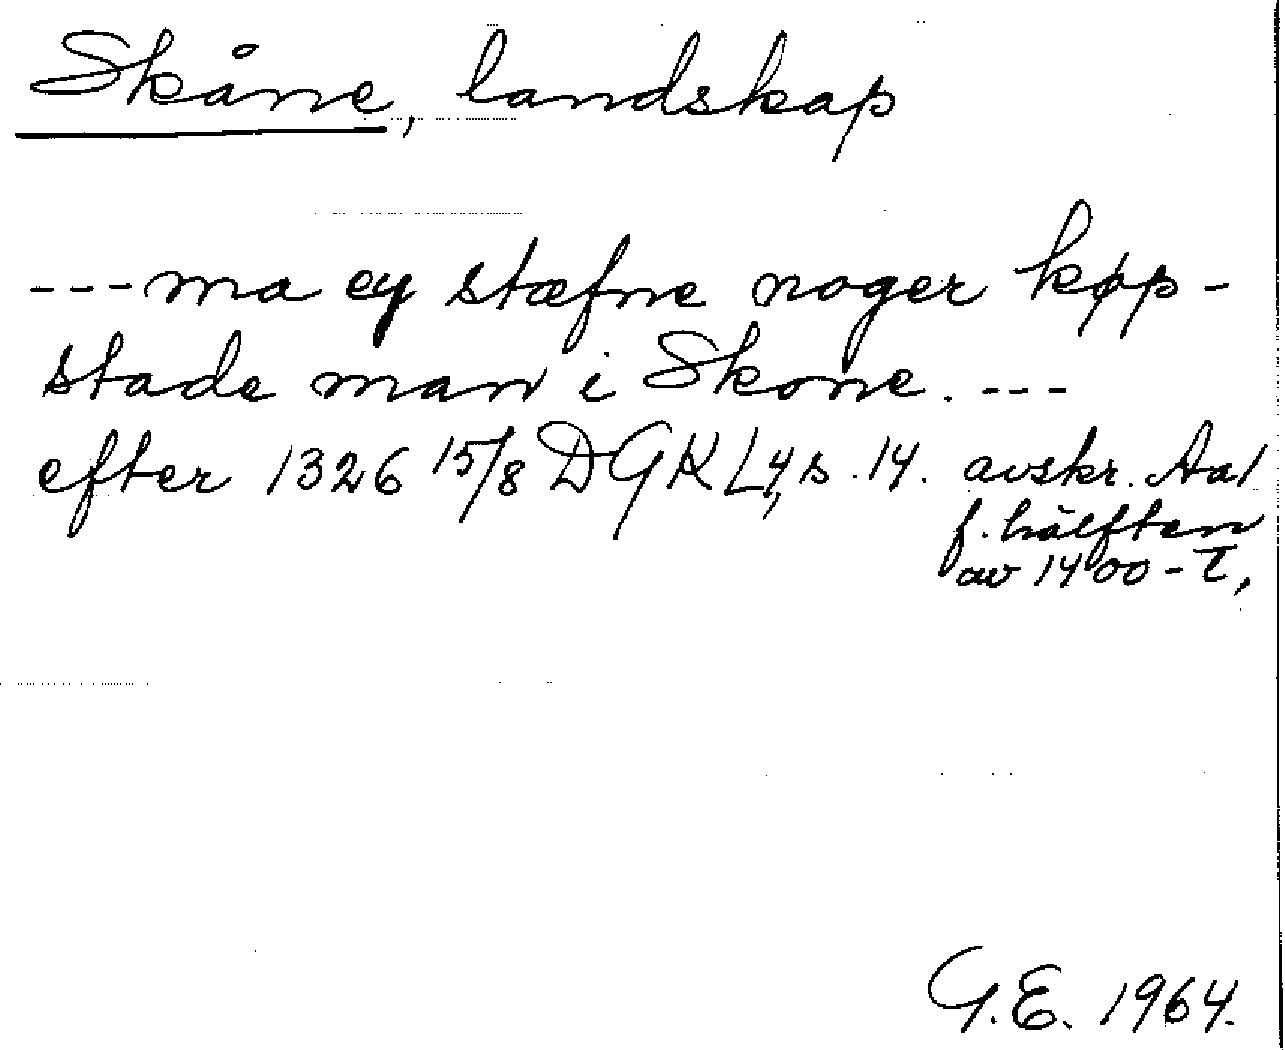 Skåne, landskap
---ma ey stæfne noger køp-
stade man i Skone. ---
efter 1326 15/8 DGKL 4, s. 14. avskr. Aa1
f. hälften
av 1400-t.
G.E. 1964.